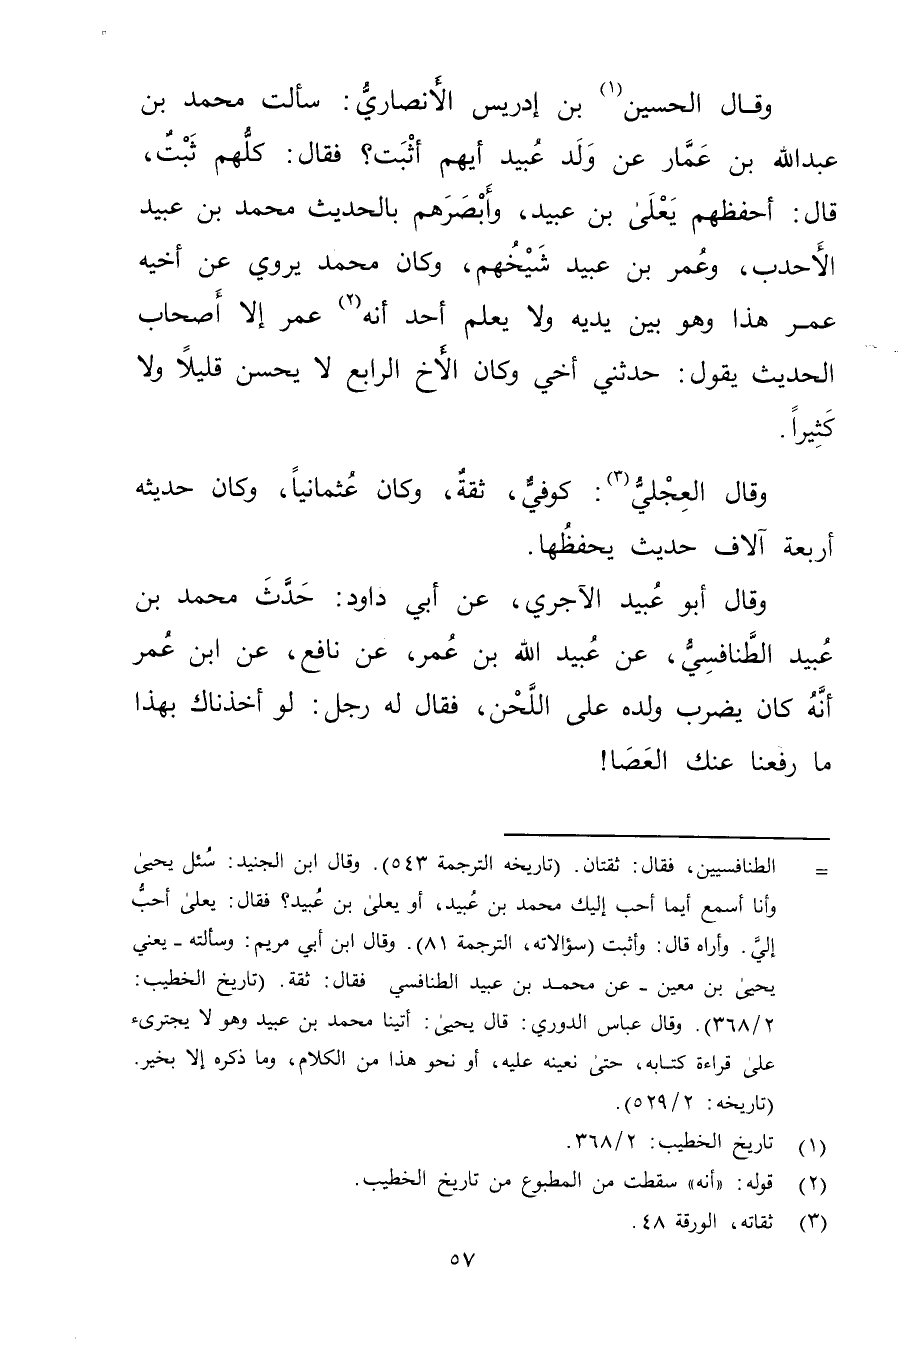 وقال الحسين(١) بن إدريس الأَنصاريُّ: سألت محمد بن
عبدالله بن عَمَّار عن وَلَد عُبيد أيهم أثْبَت؟ فقال: كلُّهم ثَبْتٌ،
قال: أحفظهم يَعْلَىٰ بن عبيد، وأَبْصَرَهم بالحديث محمد بن عبيد
الأَحدب، وعُمر بن عبيد شَيْخُهم، وكان محمد يروي عن أخيه
عمر هذا وهو بين يديه ولا يعلم أحد أنه(٢) عمر إلا أَصحاب
الحديث يقول: حدثني أخي وكان الأَخ الرابع لا يحسن قليلاً ولا
كَثِيراً.
وقال العِجْليُّ(٣): كوفيٌّ، ثقةٌ، وكان عُثمانياً، وكان حديثه
أربعة آلاف حديث يحفظُها.
وقال أبو عُبيد الآجري، عن أبي داود: حَدَّثَ محمد بن
عُبيد الطَّنافسِيُّ، عن عُبيد الله بن عُمر، عن نافع، عن ابن عُمر
أنَّهُ كان يضرب ولده على اللَّحْن، فقال له رجل: لو أخذناك بهذا
ما رفعنا عنك العَصَا!
= الطنافسيين، فقال: ثقتان. (تاريخه الترجمة ٥٤٣). وقال ابن الجنيد: سُئل يحيىٰ
وأنا أسمع أيما أحب إليك محمد بن عُبيد، أو يعلىٰ بن عُبيد؟ فقال: يعلىٰ أحبُّ
إليَّ. وأراه قال: وأثبت (سؤالاته، الترجمة ٨١). وقال ابن أبي مريم: وسألته ـ يعني
يحيىٰ بن معين ـ عن محمد بن عبيد الطنافسي فقال: ثقة. (تاريخ الخطيب:
٣٦٨/٢). وقال عباس الدوري: قال يحيىٰ: أتينا محمد بن عبيد وهو لا يجترىء
علىٰ قراءة كتابه، حتىٰ نعينه عليه، أو نحو هذا من الكلام، وما ذكره إلا بخير.
(تاريخه: ٥٢٩/٢).
(١) تاريخ الخطيب: ٣٦٨/٢.
(٢) قوله: «أنه» سقطت من المطبوع من تاريخ الخطيب.
(٣) ثقاته، الورقة ٤٨.
٥٧